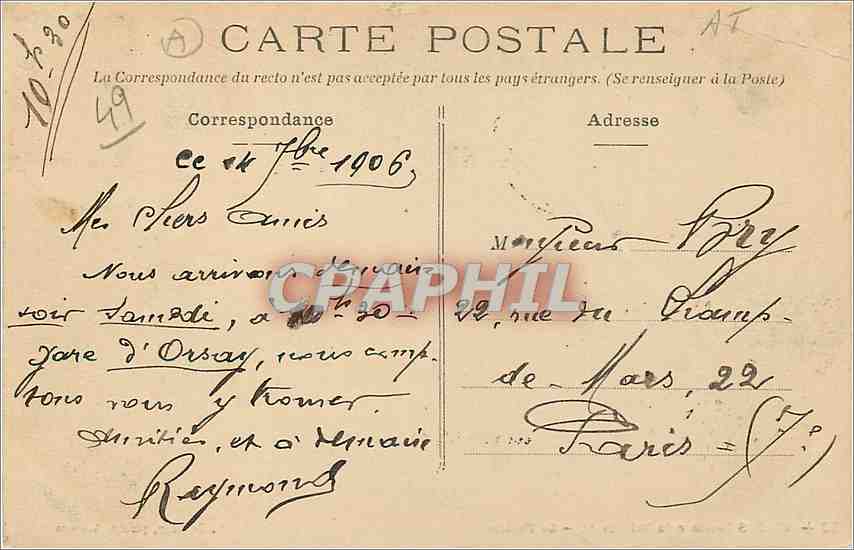 10 h 30
49
A
AT
CARTE POSTALE
La Correspondance du recto n'est pas acceptée par tous les pays étrangers. (Se renseigner à la Poste)
Correspondance
ce 14 7bre 1906,
Mes chers Amis
Nous arrivons demain
soir Samedi, à 10h 30 =
gare d'Orsay, nous comp-
tons vous y trouver.
Amitiés, et à demain
Raymond
CPAPHIL
Adresse
Monsieur Bry
22, rue du Champ-
de-Mars, 22
Paris = (7e)